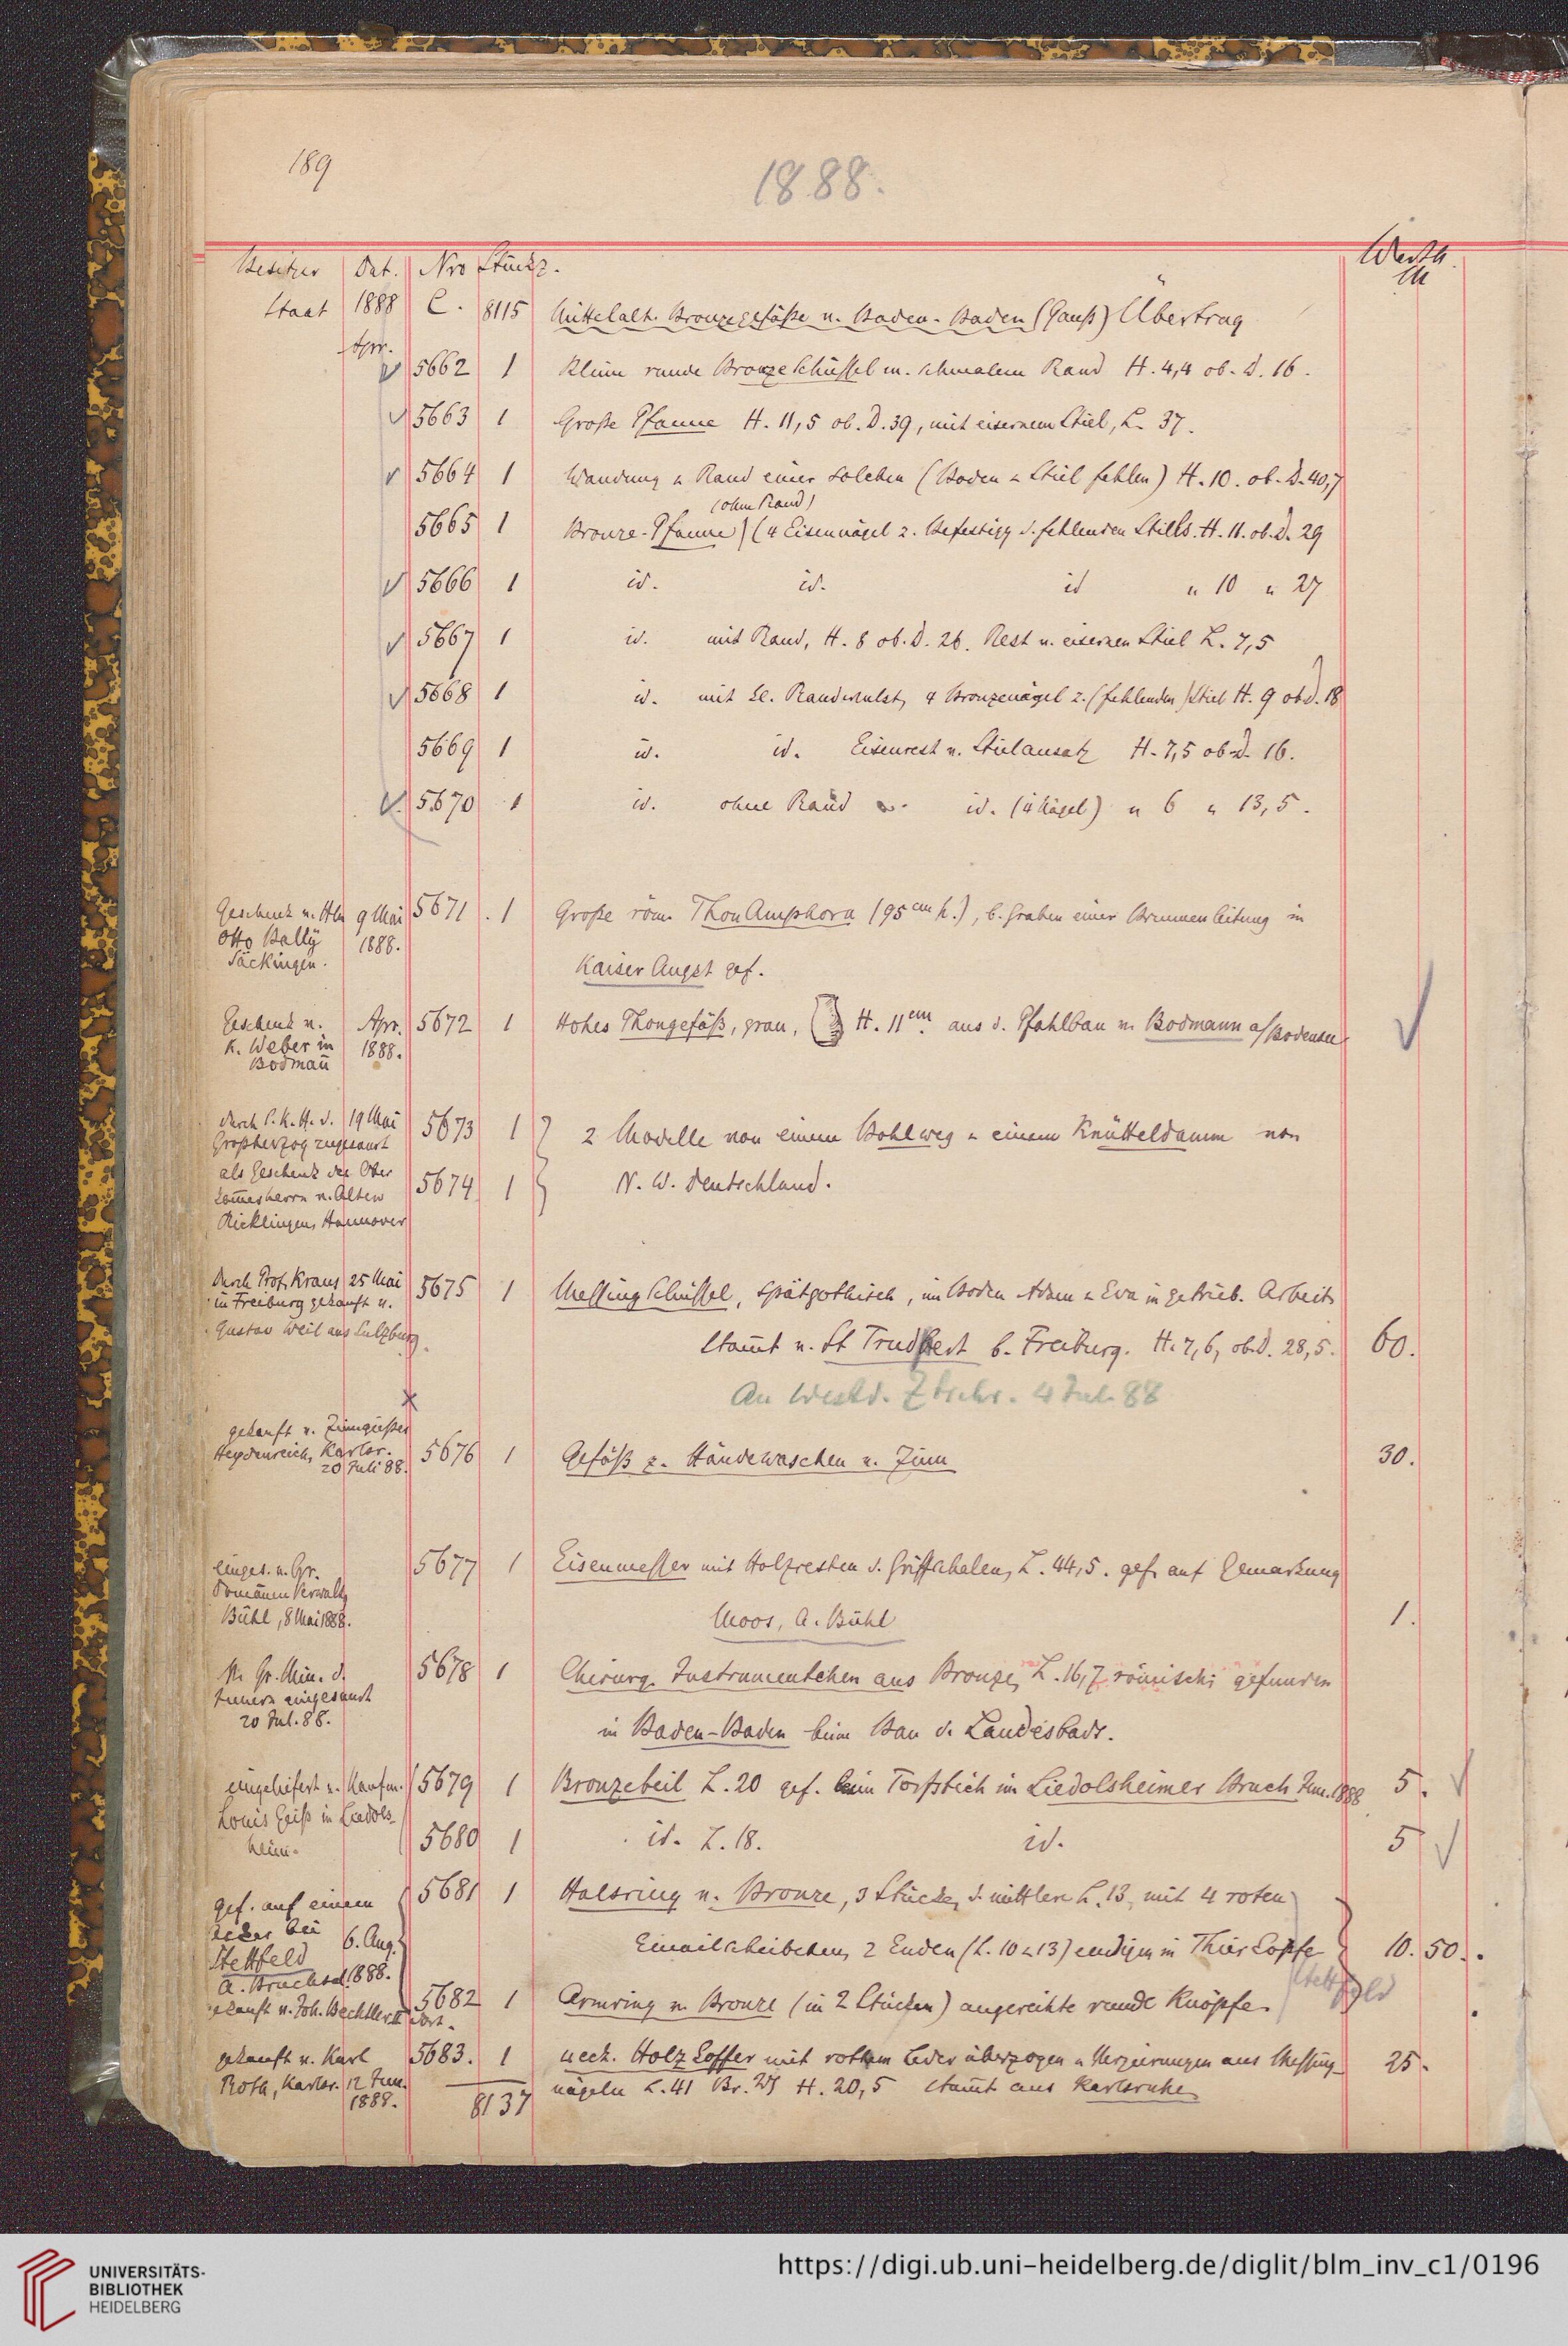 189
1888.
Besitzer Dat. Nro Stückz. Werth
M
Staat 1888 C. 8115 Mittelalt. Bronzegefäße v. Baden-Baden (Gauß) Übertrag
Apr.
5662 1 Kleine runde Bronze Schüssel m. schmalem Rand H. 4,4 ob. D. 16.
5663 1 Große Pfanne H. 11,5 ob. D. 39, mit eisernem Stiel, L. 37.
5664 1 Wandung u Rand einer solchen (Boden u Stiel fehlen) H. 10. ob. D. 40,7
(ohne Rand)
5665 1 Bronze-Pfanne (4 Eisennägel z. Befestigg d. fehlenden Stiels. H. 11. ob. D. 29
5666 1 id. id. id " 10 " 27
5667 1 id. mit Rand, H. 8 ob. D. 26. Rest v. eisernen Stiel L. 7,5
5668 1 id. mit kl. Randwulst, 4 Bronzenägel z. (fehlenden) Stiel H. 9 ob d. 18
5669 1 id. id. Eisenrest v. Stielansatz H. 7,5 ob. D. 16.
5670 1 id. ohne Rand id. (4 Nägel) " 6 " 13,5.
Geschenk v. Hln 9 Mai 5671 1 Große röm. Thon Amphora (95 cm h.), b. Graben einer Brunnenleitung in
Otto Bally 1888.
Säckingen. Kaiser Augst gef.
Geschenk v. Apr. 5672 1 Hohes Thongefäß, grau, H. 11 cm. aus d. Pfahlbau v. Bodmann a/Bodensee
K. Weber in 1888.
Bodmañ
durch S. K. H. d. 19 Mai 5673 1 2 Modelle von einem Bohlweg u einem Knütteldamm von
Großherzog zugesandt
als Geschenk des Ober 5674 1 N. W. Deutschland.
v. Alten
Ricklingen, Hannover
durch Prof. Kraus 25 Mai 5675 1 Messing Schüssel, spätgothisch, im Boden Adam u Eva in getrieb. Arbeit
in Freiburg gekauft v.
Gustav Weil aus Sulzburg. Stam̄t v. St Trudpert b. Freiburg. H. 7,6, ob. D. 28,5. 60.
An Westd. Ztschr. 4 Jul. 88
gekauft v. Zinngießer
Heydenreich, Karlsr. 5676 1 Gefäß z. Händewaschen v. Zinn 30.
20 Juli 88.
einges. v. Gr. 5677 1 Eisenmesser mit Holzresten d. Griffschalen, L. 44,5. gef. auf Gemarkung
Domänen Verwaltg
Bühl, 8 Mai 1888. Moos, A. Bühl 1.
v. Gr. Min. d. 5678 1 Chirurg. Instrumentchen aus Bronze, L. 16,7 römisch; gefunden
Innern eingesandt
20 Jul. 88. in Baden-Baden beim Bau d. Landesbads.
eingeliefert v. Kaufm. 5679 1 Bronzebeil L. 20 gef. beim Torfstich im Liedolsheimer Bruch Jun. 1888 5.
Louis Geiß in Liedols-
heim. 5680 1 id. L. 18. id. 5
gef. auf einem 5681 1 Halsring v. Bronze, 3 Stücke, d. mittlere L. 13, mit 4 roten
Acker bei 6. Aug.
Stettfeld 1888. Emailscheibchen, 2 Enden (L. 10 u 13) endigen in Thierkopfe 10. 50.
A. Bruchsal Stettfeld
gekauft v. Joh. Bechtler II dort. 5682 1 Armring v. Bronze (in 2 Stücken) angereihte runde Knöpfe.
gekauft v. Karl 5683. 1 4eck. Holzkoffer mit rothem Leder überzogen u Verzierungen aus Messing- 25.
Roth, Karlsr. 12 Jun. nägeln L. 41 Br. H. 20,5 Stam̄t aus Karlsruhe
1888. 8137
UNIVERSITÄTS-
BIBLIOTHEK
HEIDELBERG
https://digi.ub.uni-heidelberg.de/diglit/blm_inv_c1/0196